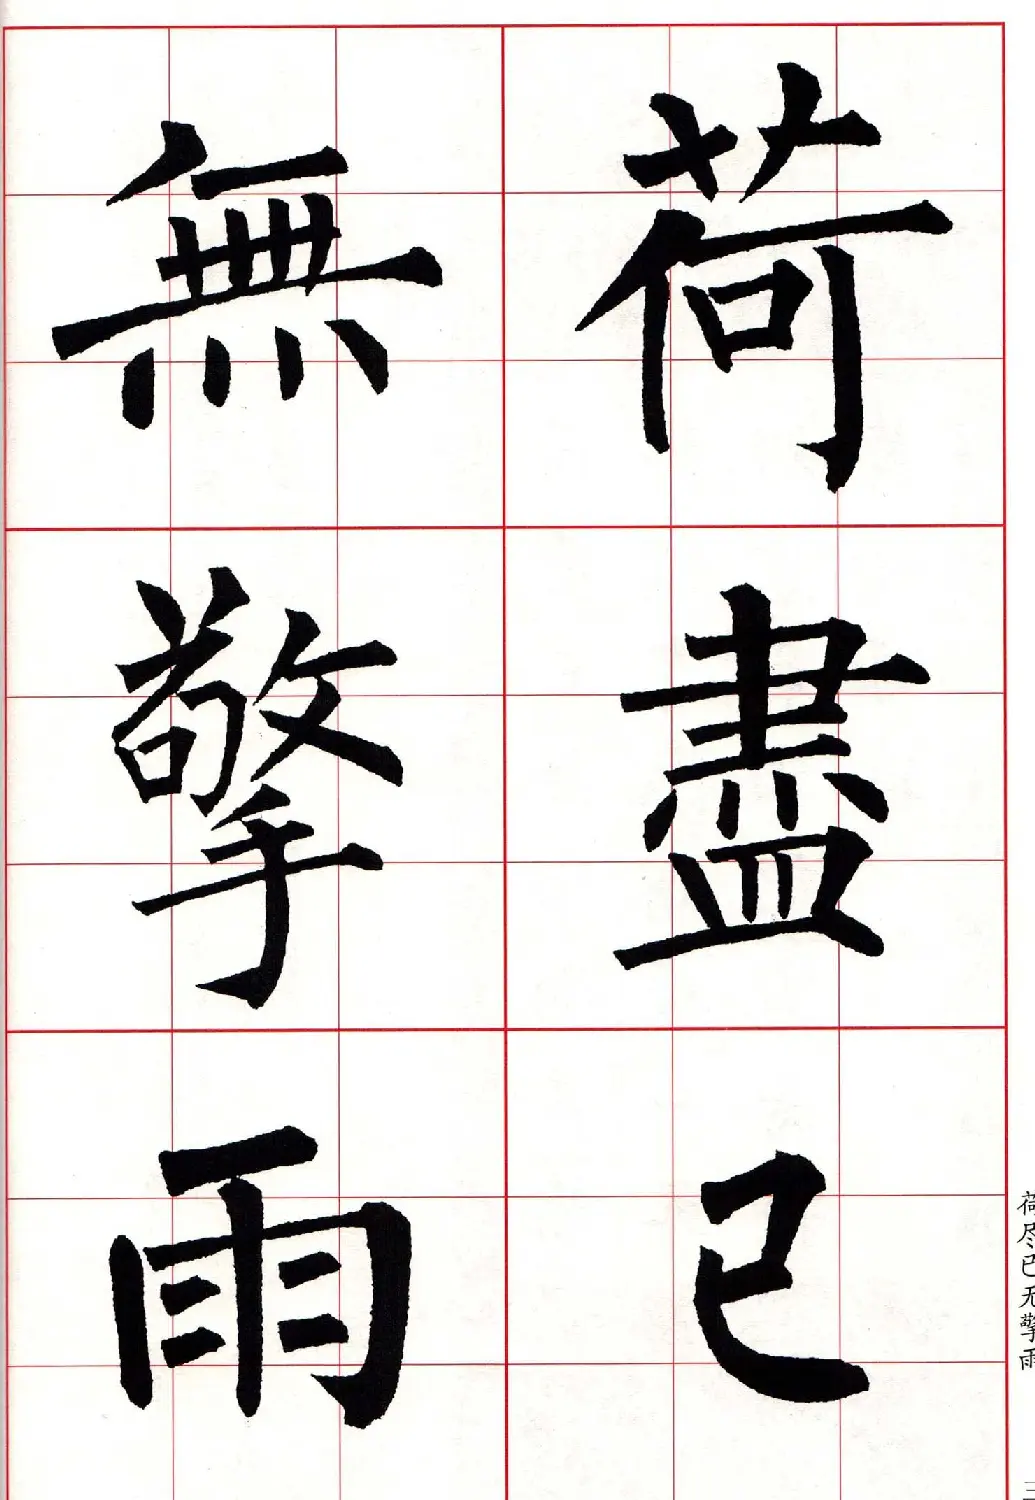 荷盡已
無擎雨
荷尽已无擎雨
三